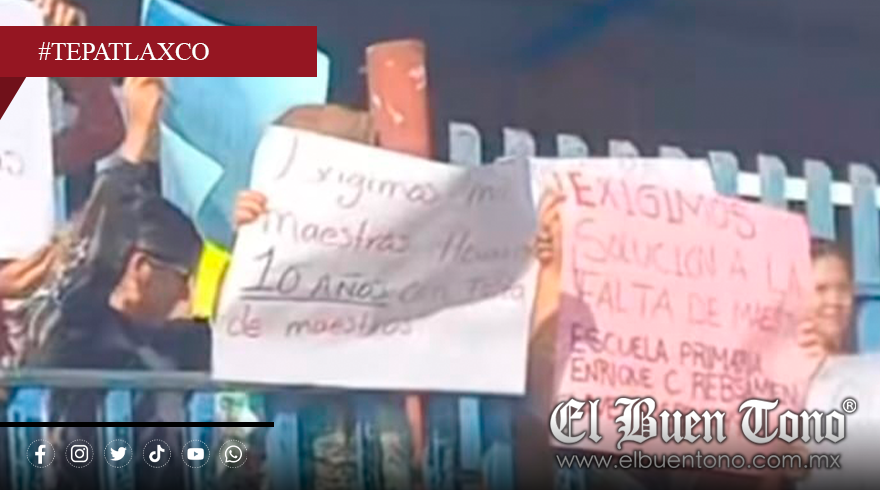 #TEPATLAXCO
Exigimos
maestras
10 AÑOS con falta
de maestros
¡EXIGIMOS
SOLUCION A LA
FALTA DE
ESCUELA PRIMARIA
ENRIQUE C REBSAMEN
El Buen Tono®
www.elbuentono.com.mx